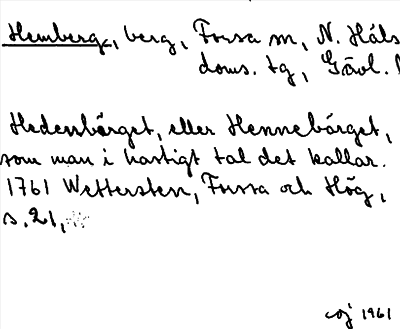 Hemberg, berg, Forsa sn, N. Häls
doms. tg, Gävl. l
Hedensbärget, eller Hennebärget,
som man i hastigt tal det kallar.
1761 Wettersten, Forssa och Hög,
s. 21,
1961